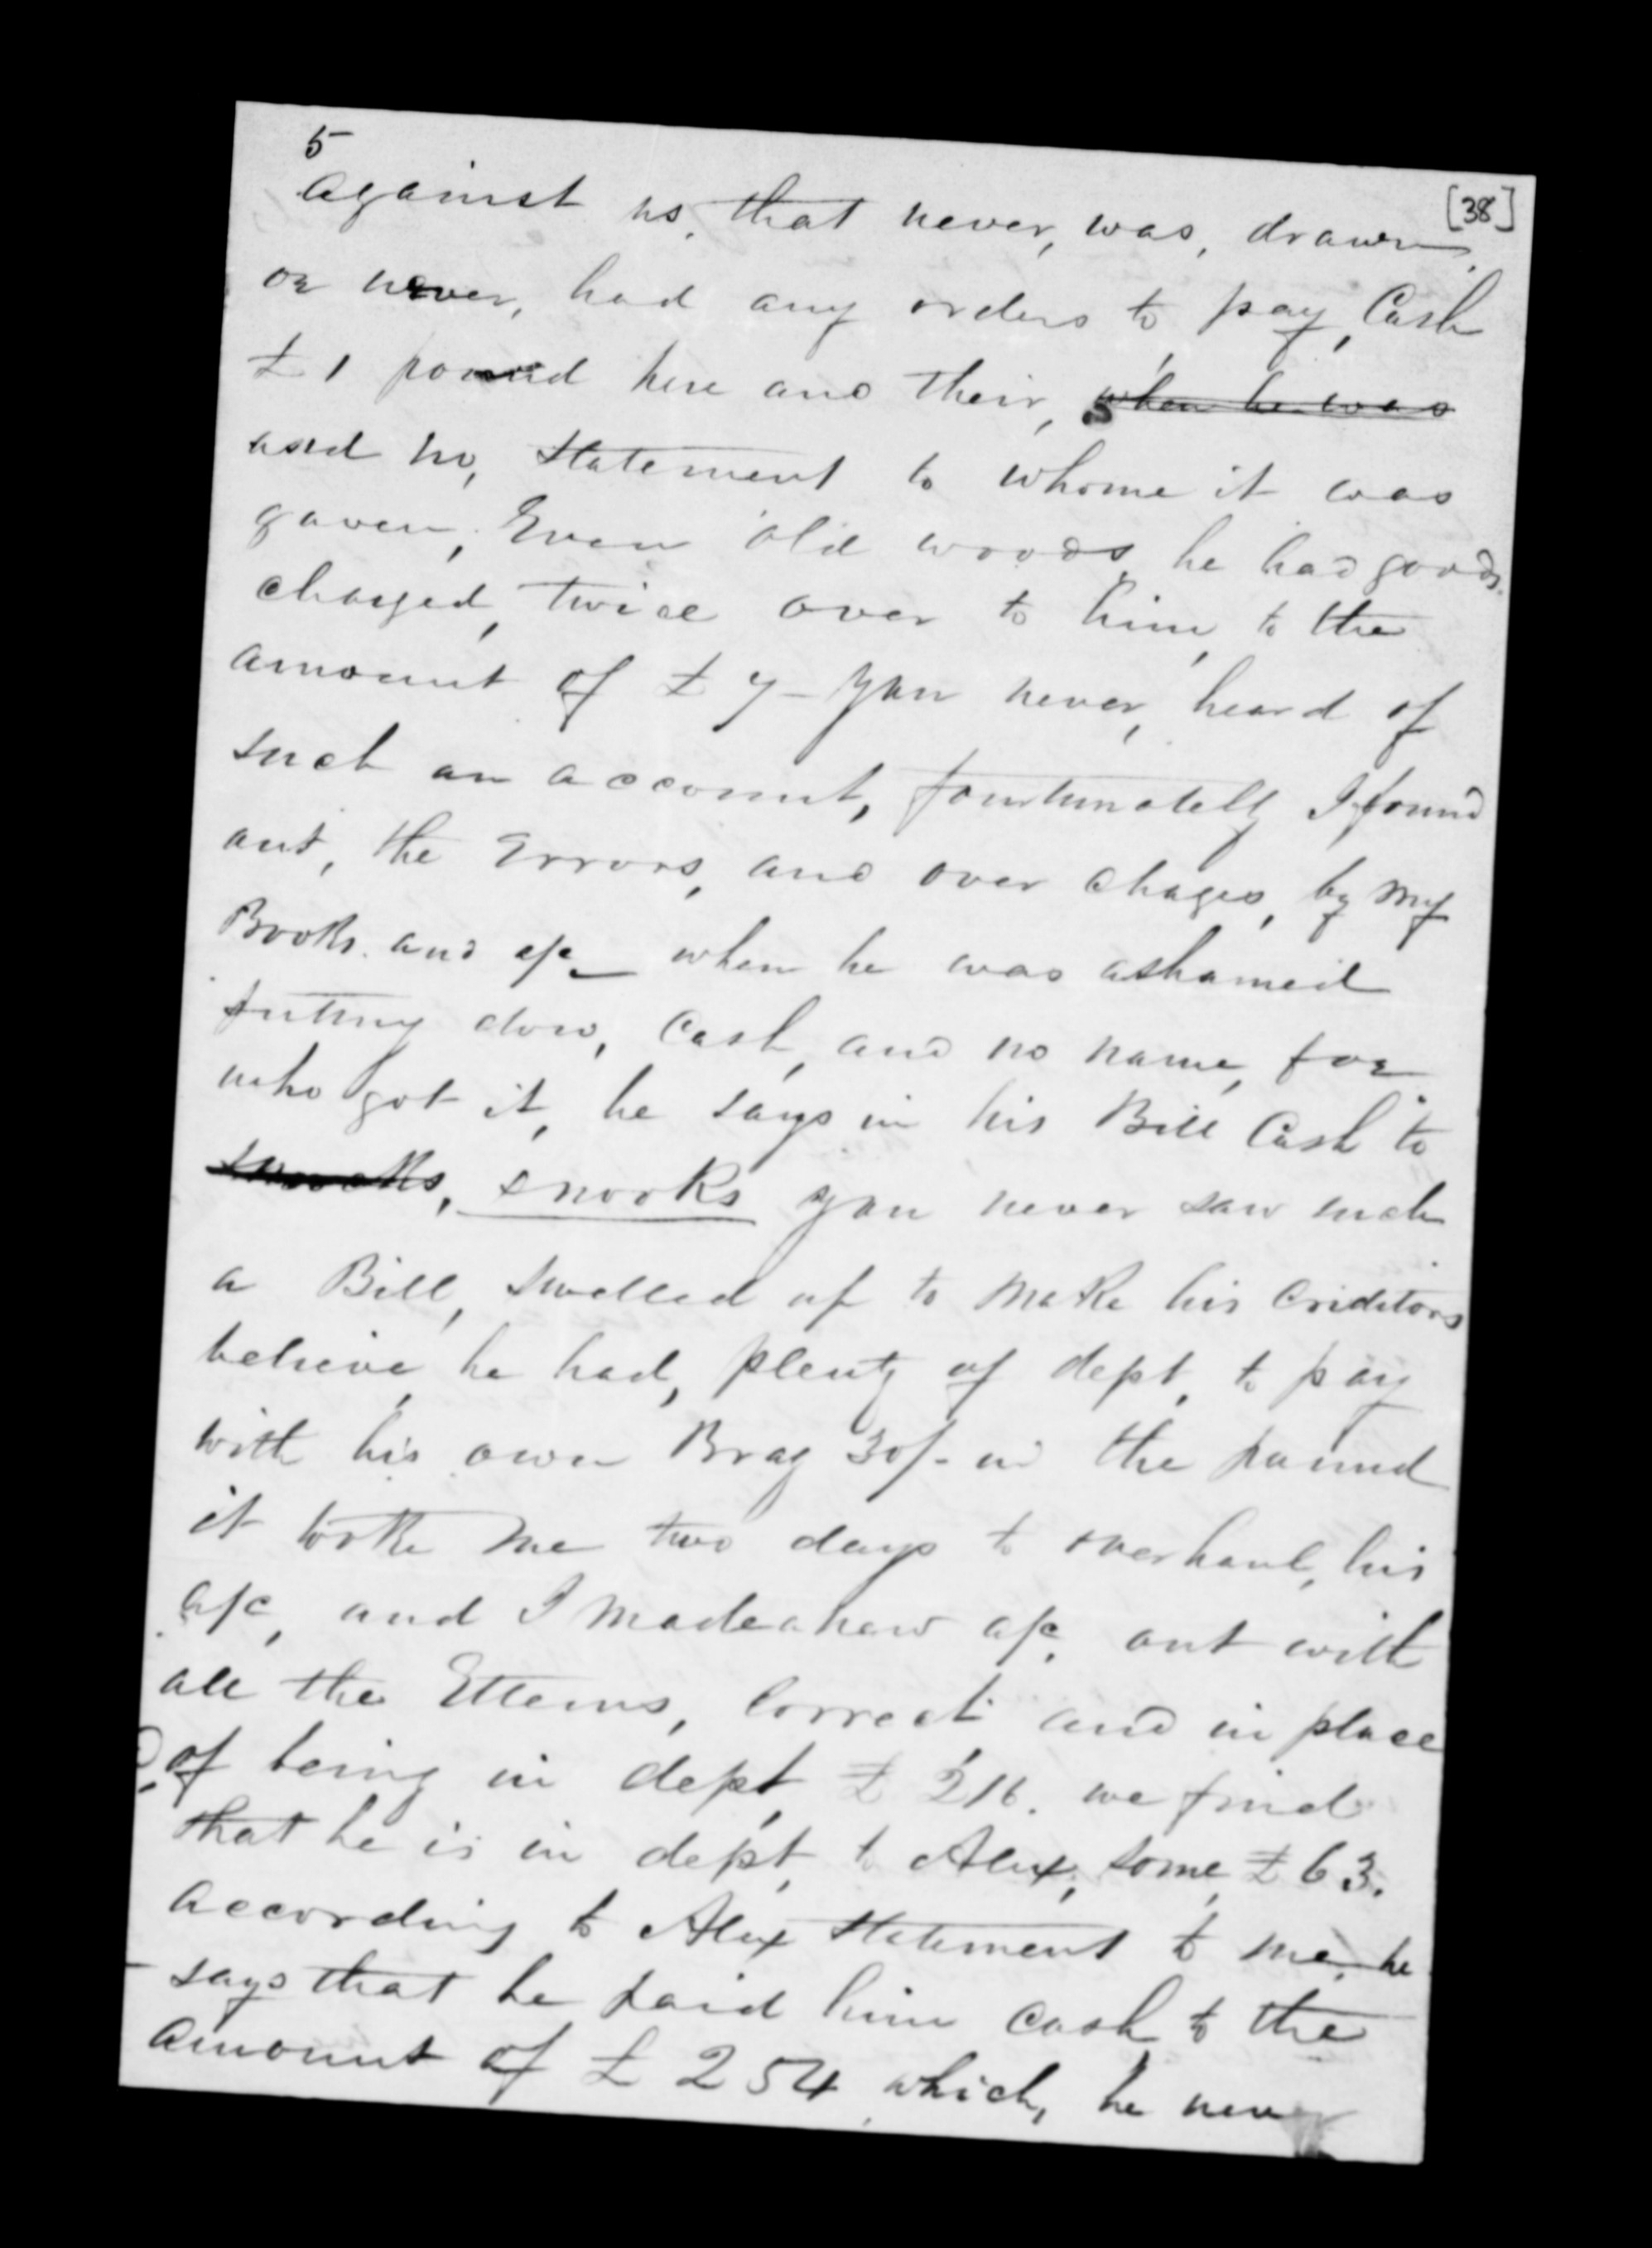 5
[38]
against us, that never, was, drawn,
or never, had any orders to pay, Cash
£ 1 pound here and their, when he was
ased no, statement to whome it was
gaven, Even old woods, he had goods.
charged, twice over to him, to the
amount of £ 7 - you never, heard of
such an account, fourtunatelly I found
out, the Errors, and over chages, by my
Books. and a/c when he was ashamed
putting dow, Cash, and no name, for
who got it, he says in his Bill Cash to
snooks, you never saw such
a Bill, swelled up to make his Criditors
believe, he had, plenty of dept, to pay
with his own Brag 30/- in the pound
it tooke me two days to overhaul, his
a/c, and I made a new a/c. out with
all the Ettems, Correct, and in place
of being in dept, £ 216. we find
that he is in dept, to Alex, some, £ 63.
according to Alex statement to me, he
says that he paid him cash to the
amount of £ 254 which, he never